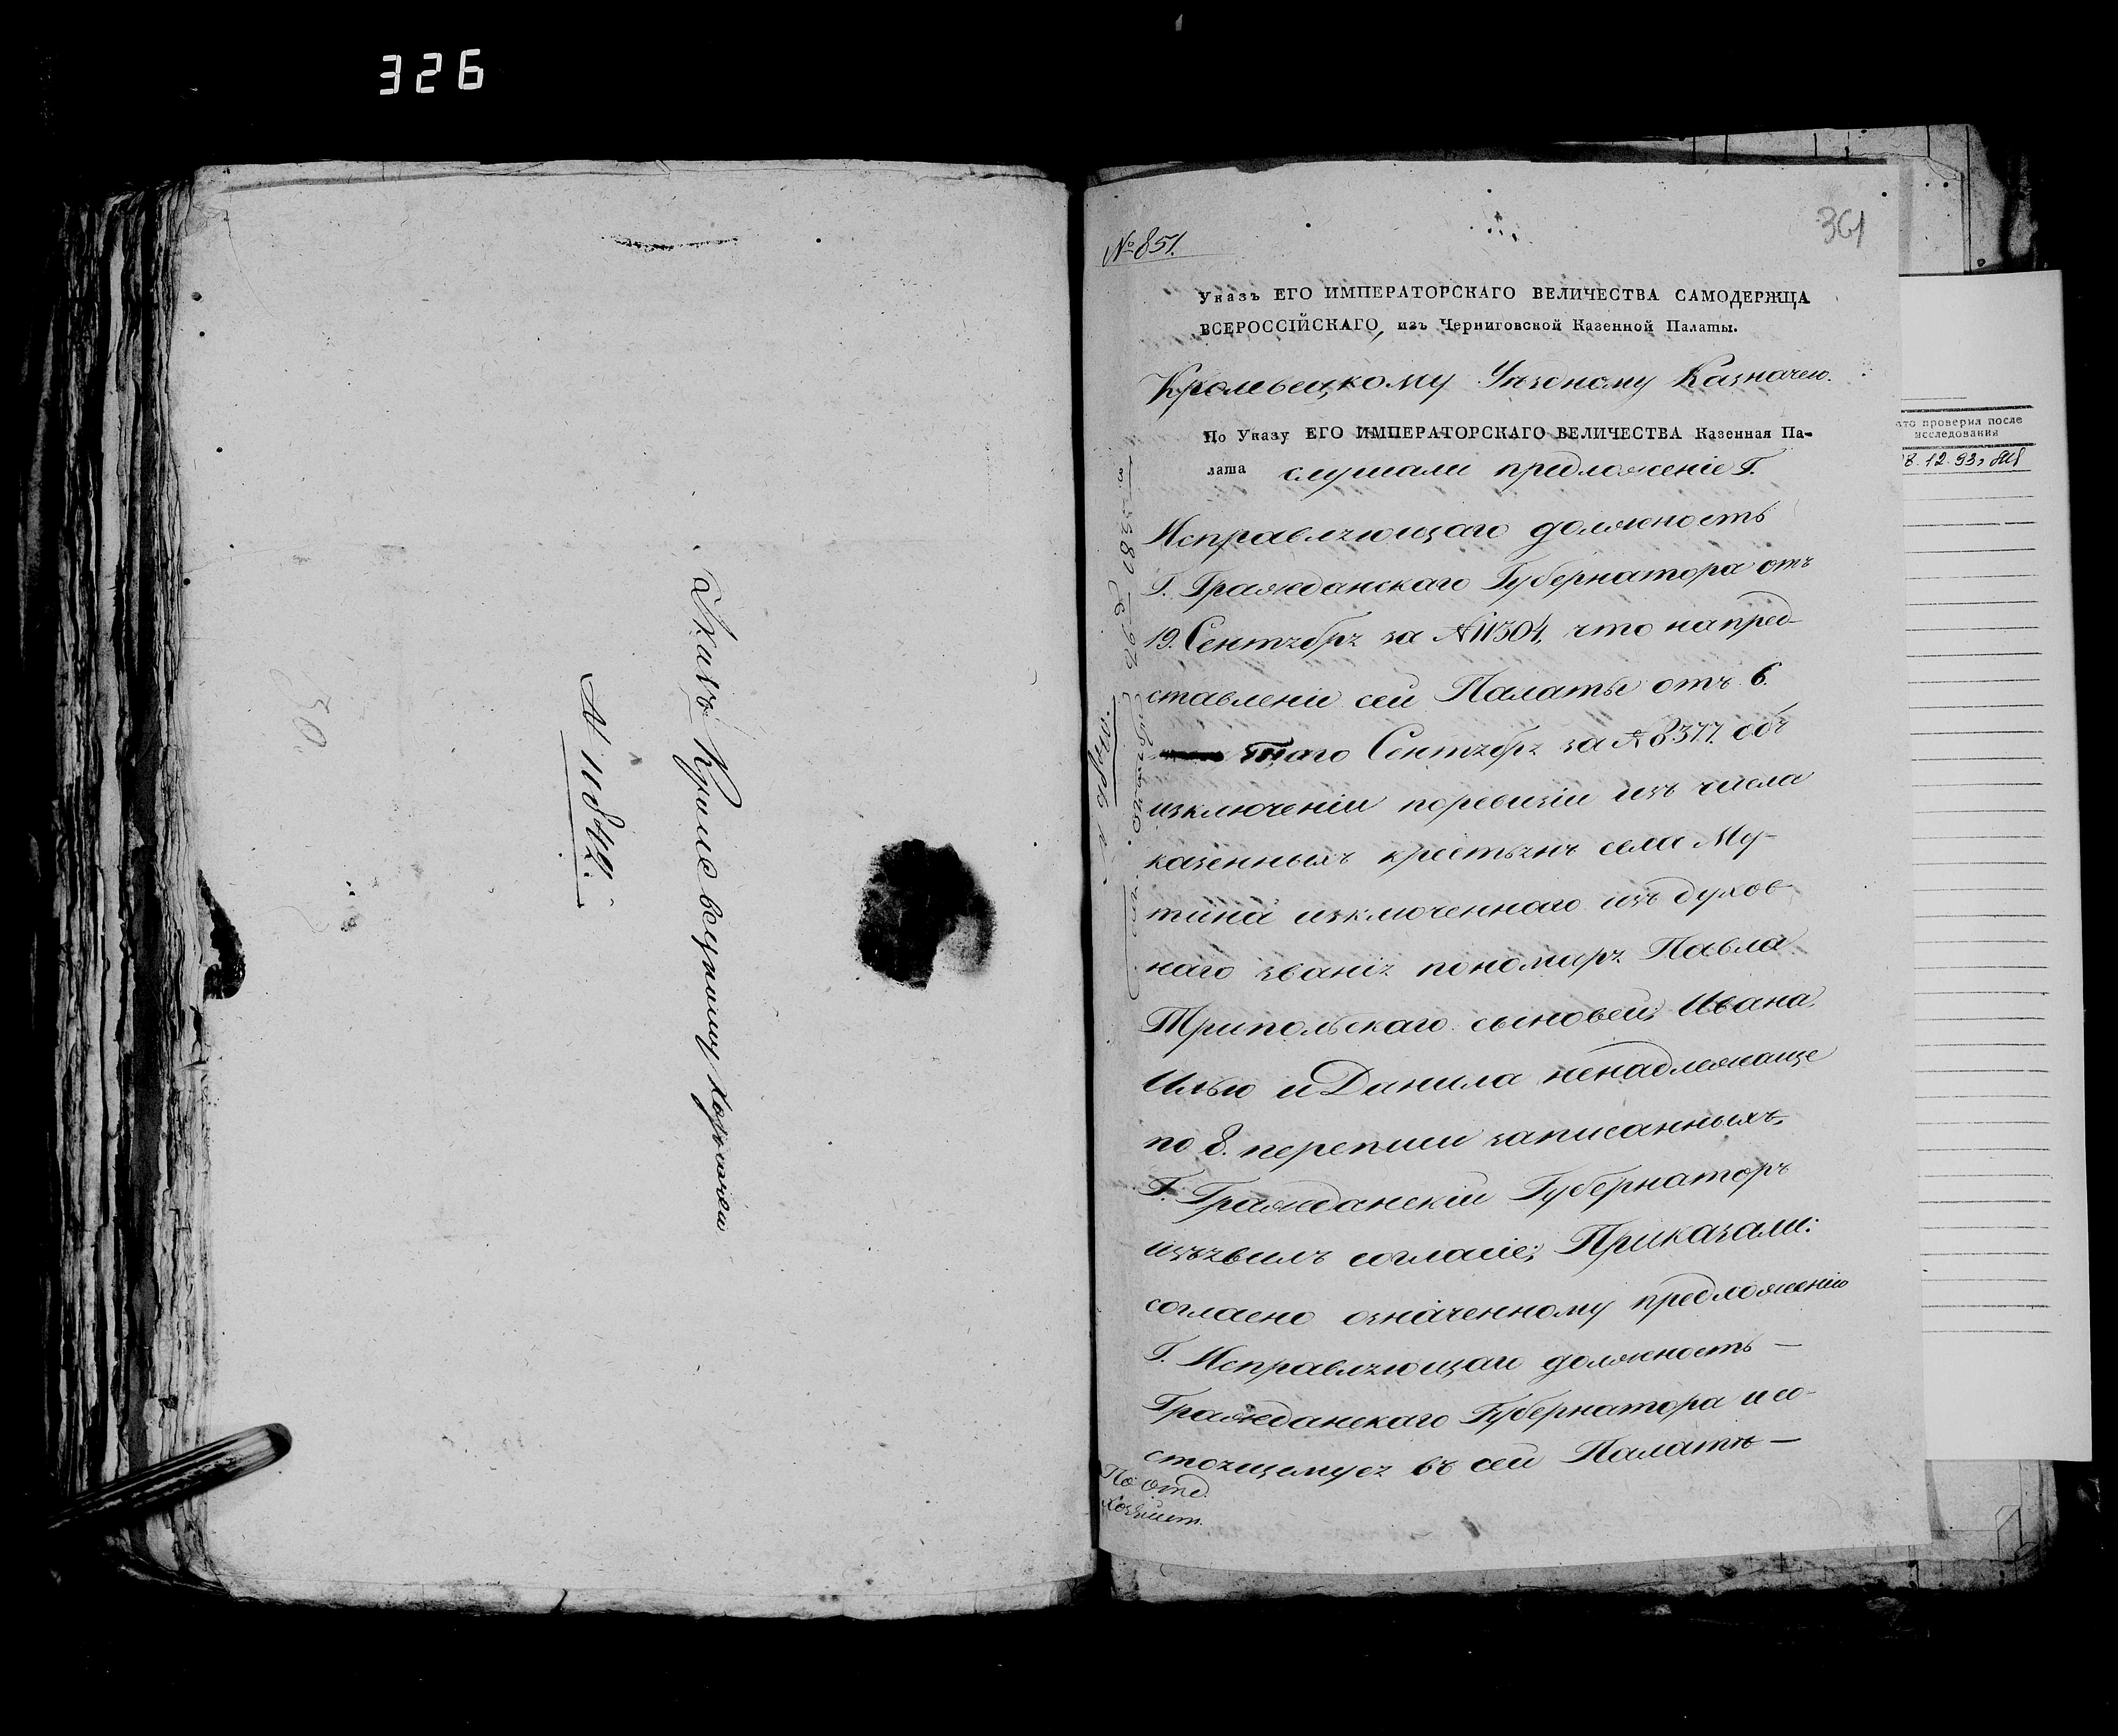 326
Указъ Кролевецкому Казначею
№ 11842.
30.
№ 851.
361
Указъ ЕГО ИМПЕРАТОРСКАГО ВЕЛИЧЕСТВА САМОДЕРЖЦА
ВСЕРОССІЙСКАГО, изъ Черниговской Казенной Палаты.
Кролевецкому Уѣздному Казначею.
По Указу ЕГО ИМПЕРАТОРСКАГО ВЕЛИЧЕСТВА Казенная Па-
лата слушали предложеніе Г.
Исправляющаго должность
Г. Гражданскаго Губернатора отъ
19. Сентября за № 11304, что на пред-
ставленіи сей Палаты отъ 6.
Сентября за № 8377. объ
изключеніи поревизіи изъ числа
казенныхъ крестьянъ села Му-
тина изключеннаго изъ духов-
наго званія пономаря Павла
Трипольскаго сыновей; Ивана,
Илью и Данила ненадлежаще
по 8. переписи записанныхъ,
Г. Гражданскій Губернаторъ
изъявилъ согласіе; Приказали:
согласно означенному предложенію
Г. Исправляющаго должность —
Гражданскаго Губернатора и со-
стоящемуся въ сей Палатѣ —
По отд.
Хозяйст.
кто проверил после
исследования